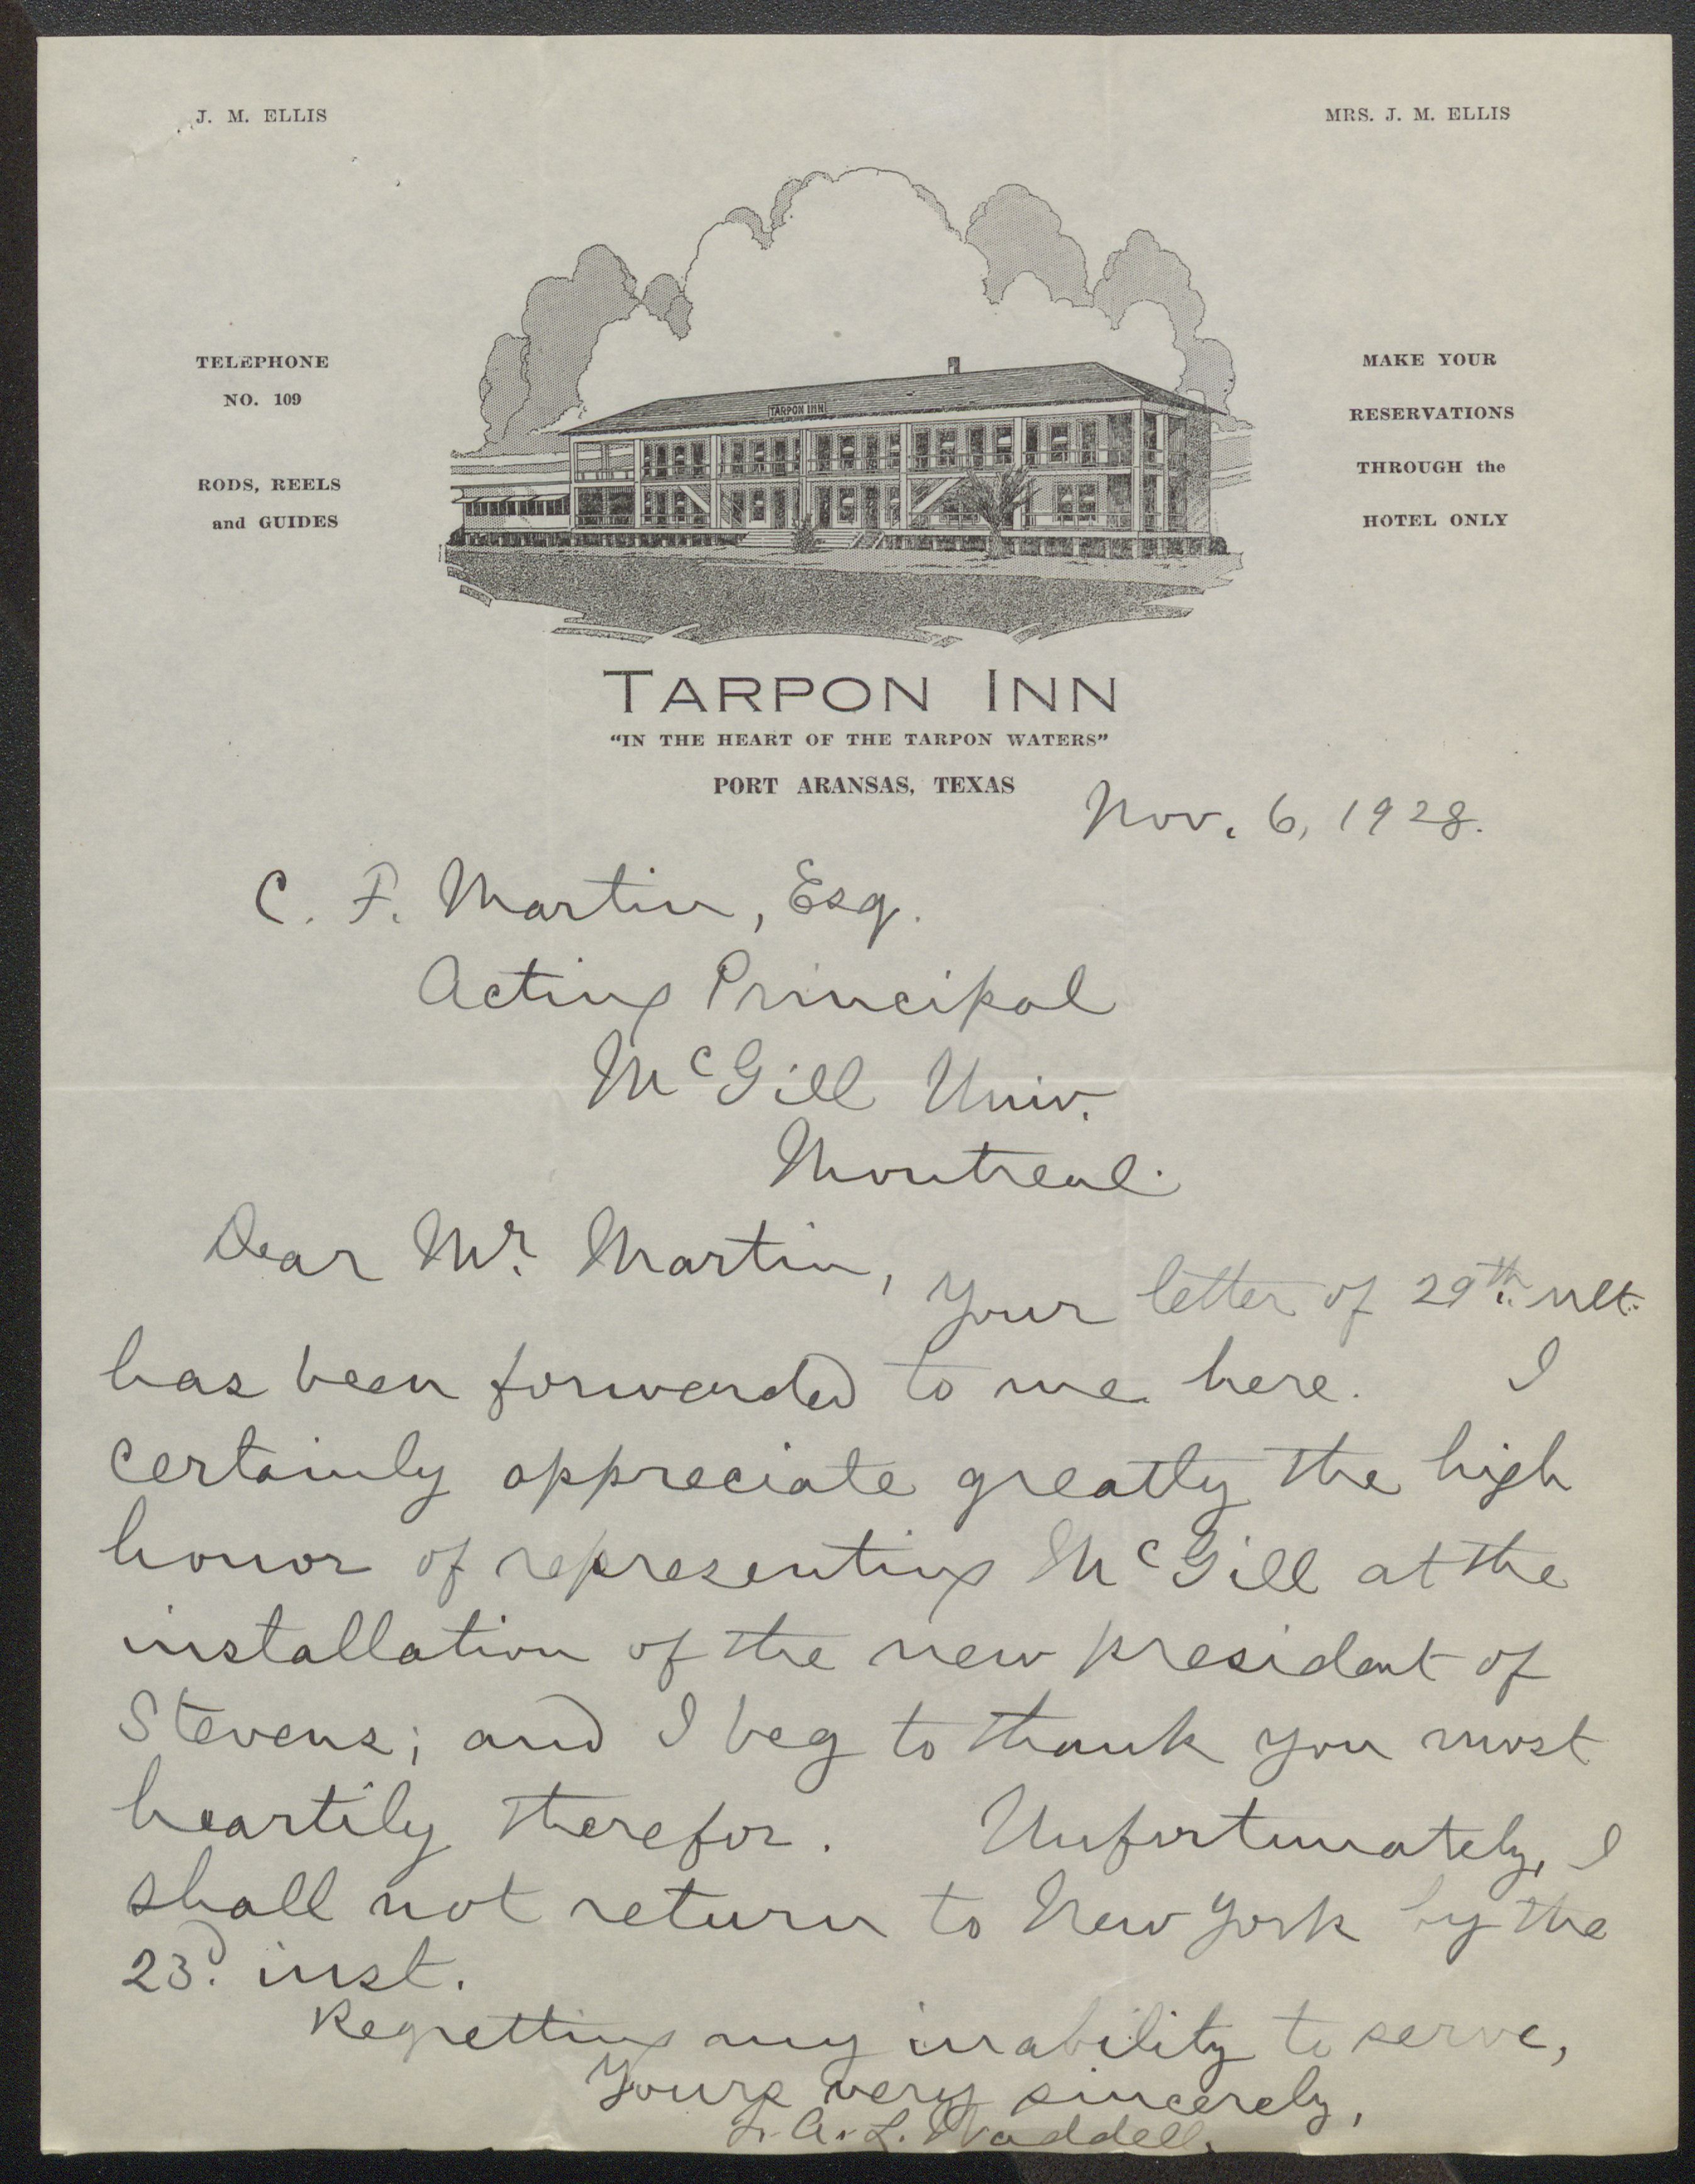 J. M. ELLIS
MRS. J. M. ELLIS
TELEPHONE
NO. 109
RODS, REELS
and GUIDES
MAKE YOUR
RESERVATIONS
THROUGH the
HOTEL ONLY
TARPON INN
TARPON INN
"IN THE HEART OF THE TARPON WATERS"
PORT ARANSAS, TEXAS
Nov. 6, 1928.
C. F. Martin, Esq.
Acting Principal
McGill Univ.
Montreal.
Dear Mr. Martin,
Your letter of 29th. ult.
has been forwarded to me here. I
certainly appreciate greatly the high
honor of representing McGill at the
installation of the new president of
Stevens; and I beg to thank you most
heartily therefor. Unfortunately, I
shall not return to New York by the
23d. inst.
Regretting my inability to serve,
Yours very sincerely,
J. A. L. Waddell.